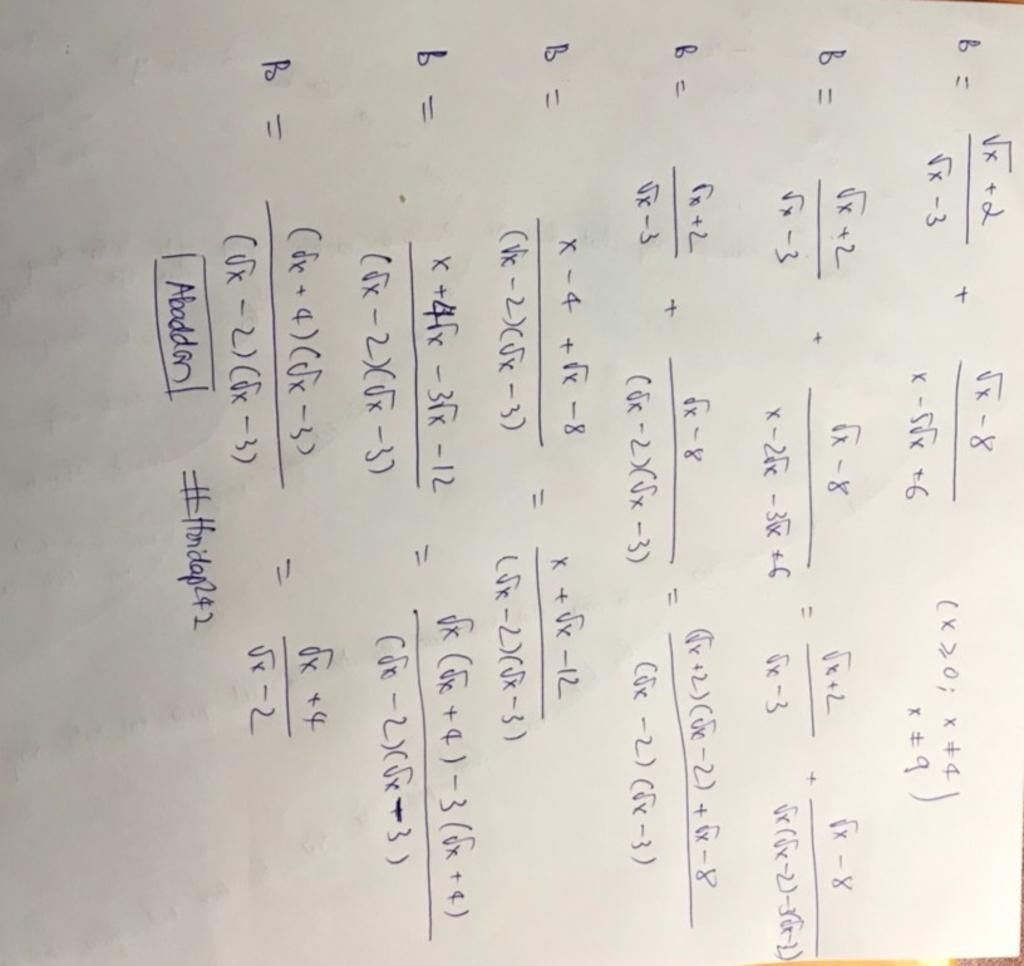 B = (√x + 2)/(√x - 3) + (√x - 8)/(x - 5√x + 6) (x ≥ 0; x ≠ 4; x ≠ 9)
B = (√x + 2)/(√x - 3) + (√x - 8)/(x - 2√x - 3√x + 6) = (√x + 2)/(√x - 3) + (√x - 8)/(√x(√x - 2) - 3(√x - 2))
B = (√x + 2)/(√x - 3) + (√x - 8)/((√x - 2)(√x - 3)) = ((√x + 2)(√x - 2) + √x - 8)/((√x - 2)(√x - 3))
B = (x - 4 + √x - 8)/((√x - 2)(√x - 3)) = (x + √x - 12)/((√x - 2)(√x - 3))
B = (x + 4√x - 3√x - 12)/((√x - 2)(√x - 3)) = (√x(√x + 4) - 3(√x + 4))/((√x - 2)(√x - 3))
B = ((√x + 4)(√x - 3))/((√x - 2)(√x - 3)) = (√x + 4)/(√x - 2)
Abaddon #Hoidap247